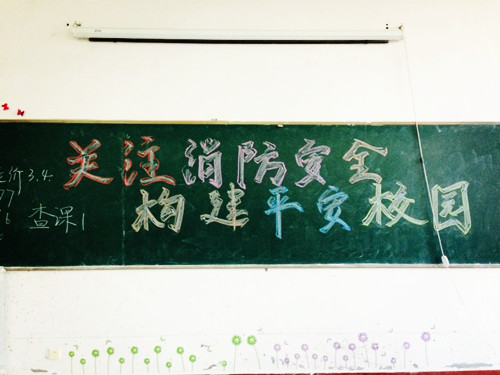 关注消防安全
构建平安校园
价3.4.
查课1